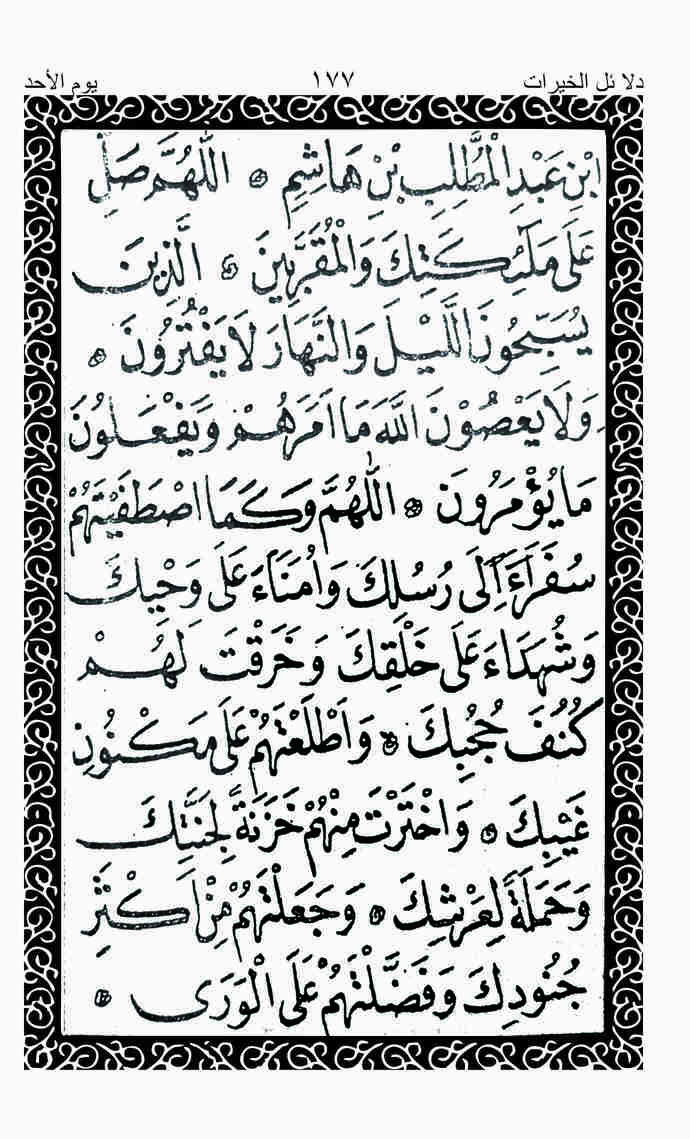 دلائل الخيرات ١٧٧ يوم الأحد
ابْنِ عَبْدِ الْمُطَّلِبِ بْنِ هَاشِمٍ ۞ اَللّٰهُمَّ صَلِّ
عَلَى مَلٰٓئِكَتِكَ وَالْمُقَرَّبِينَ ۞ الَّذِينَ
يُسَبِّحُونَ اللَّيْلَ وَالنَّهَارَ لَا يَفْتُرُونَ ۞
وَلَا يَعْصُوْنَ اللّٰهَ مَا اَمَرَهُمْ وَيَفْعَلُونَ
مَا يُؤْمَرُونَ ۞ اَللّٰهُمَّ وَكَمَا اصْطَفَيْتَهُمْ
سُفَرَآءَ اِلَى رُسُلِكَ وَاُمَنَآءَ عَلَى وَحْيِكَ
وَشُهَدَاءَ عَلَى خَلْقِكَ وَخَرَقْتَ لَهُمْ
كُنُفَ حُجُبِكَ ۞ وَاَطْلَعْتَهُمْ عَلَى مَكْنُونِ
غَيْبِكَ ۞ وَاخْتَرْتَ مِنْهُمْ خَزَنَةً لِجَنَّتِكَ
وَحَمَلَةً لِعَرْشِكَ ۞ وَجَعَلْتَهُمْ مِنْ اَكْثَرِ
جُنُودِكَ وَفَضَّلْتَهُمْ عَلَى الْوَرَى ۞